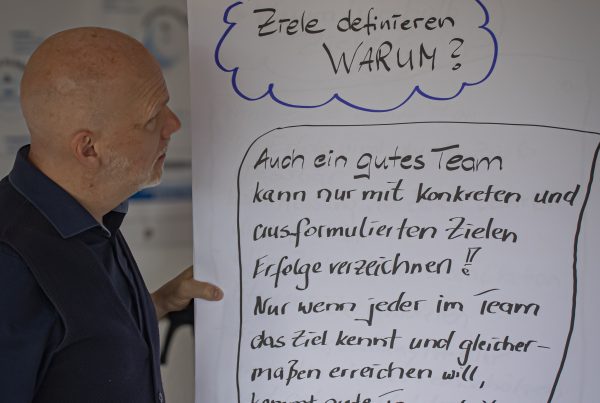 Ziele definieren
WARUM?
Auch ein gutes Team
kann nur mit konkreten und
ausformulierten Zielen
Erfolge verzeichnen!
Nur wenn jeder im Team
das Ziel kennt und gleicher-
maßen erreichen will,
kommt gute